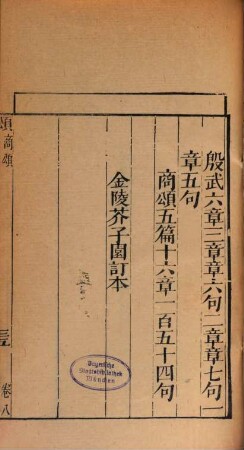 殷武六章三章章六句二章章七句一
章五句
商頌五篇十六章一百五十四句
金陵芥子園訂本
Bayerische
Staatsbibliothek
München
頌商頌
卷八